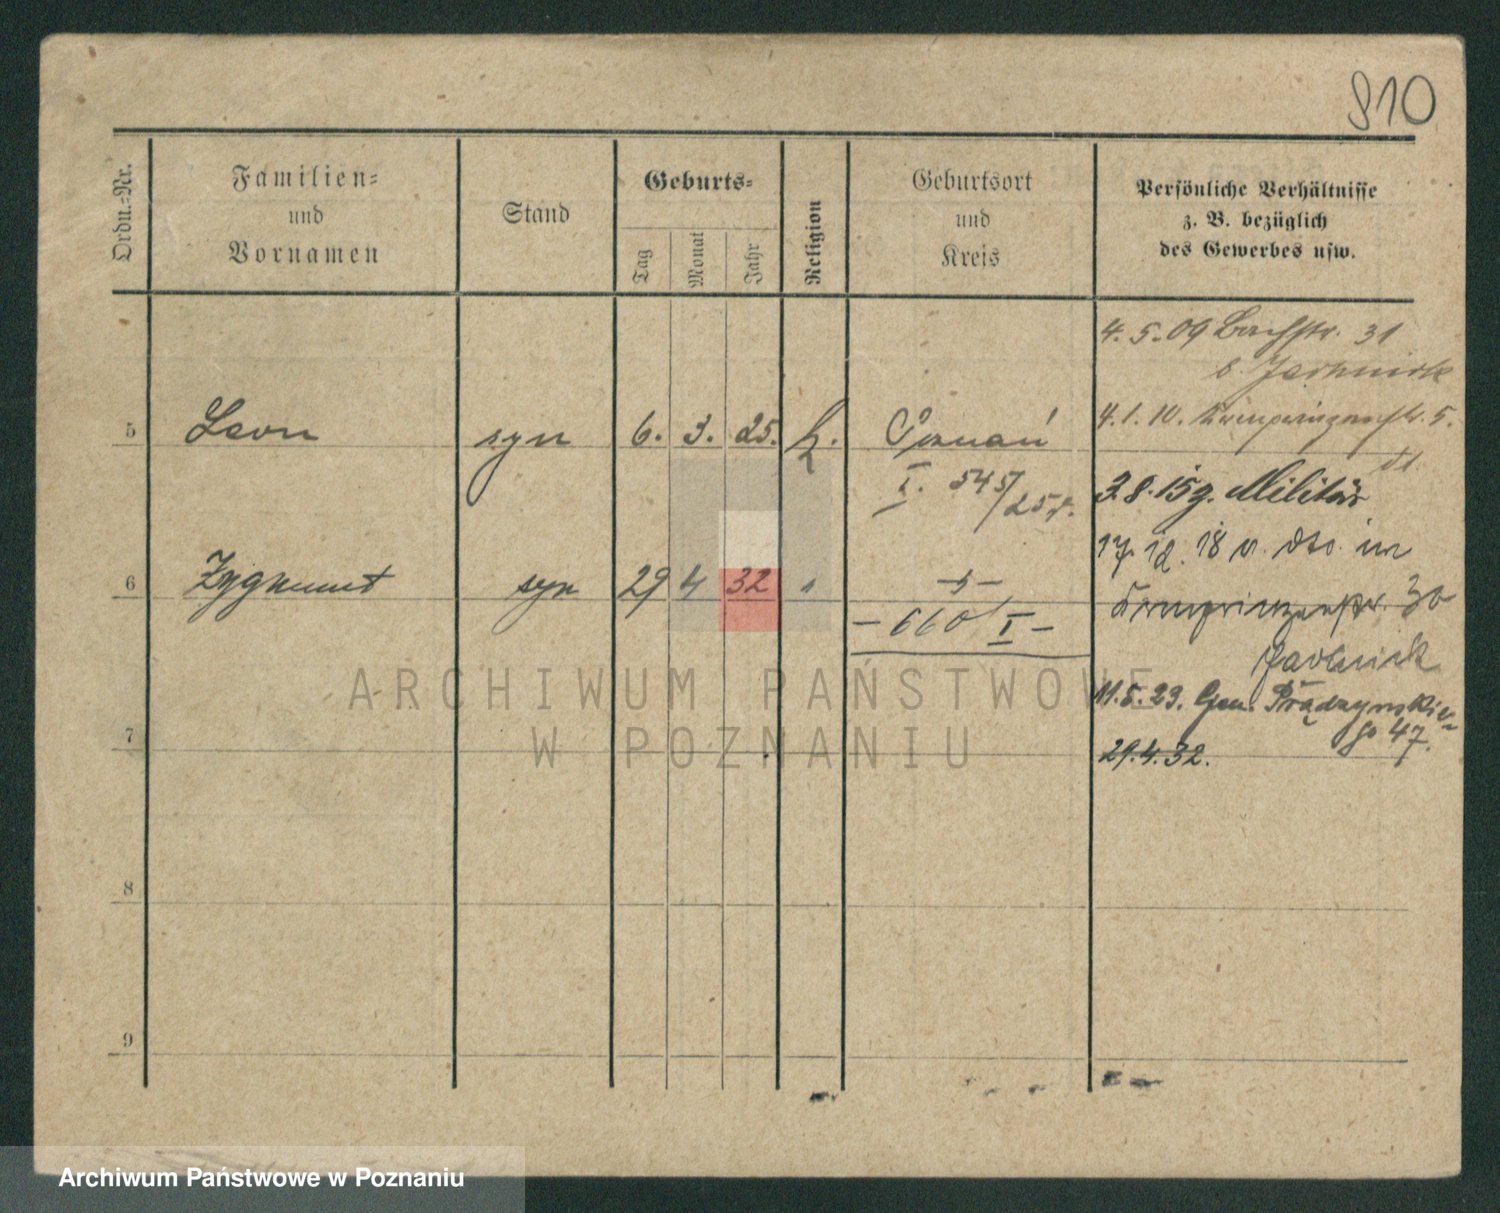 810
Ordn.-Nr.
Familien-
und
Vornamen
Stand
Geburts-
Tag
Monat
Jahr
Religion
Geburtsort
und
Kreis
Persönliche Verhältnisse
z. B. bezüglich
des Gewerbes usw.
4. 5. 09 Bachstr. 31
4. 1. 10. Kronprinzenstr. 5.
3. 8. 15 z. Militär
17. 12. 18 v. dto. in
Kronprinzenstr. 30
11. 5. 23. Gen. Prądzyńskie-
go 47.
29. 4. 32.
5 Leon syn 6. 3. 25. k. Poznań
I. 545/25 r.
6 Zygmunt syn 29 4 32 "
- 660 I -
7
8
9
ARCHIWUM PAŃSTWOWE
W POZNANIU
Archiwum Państwowe w Poznaniu